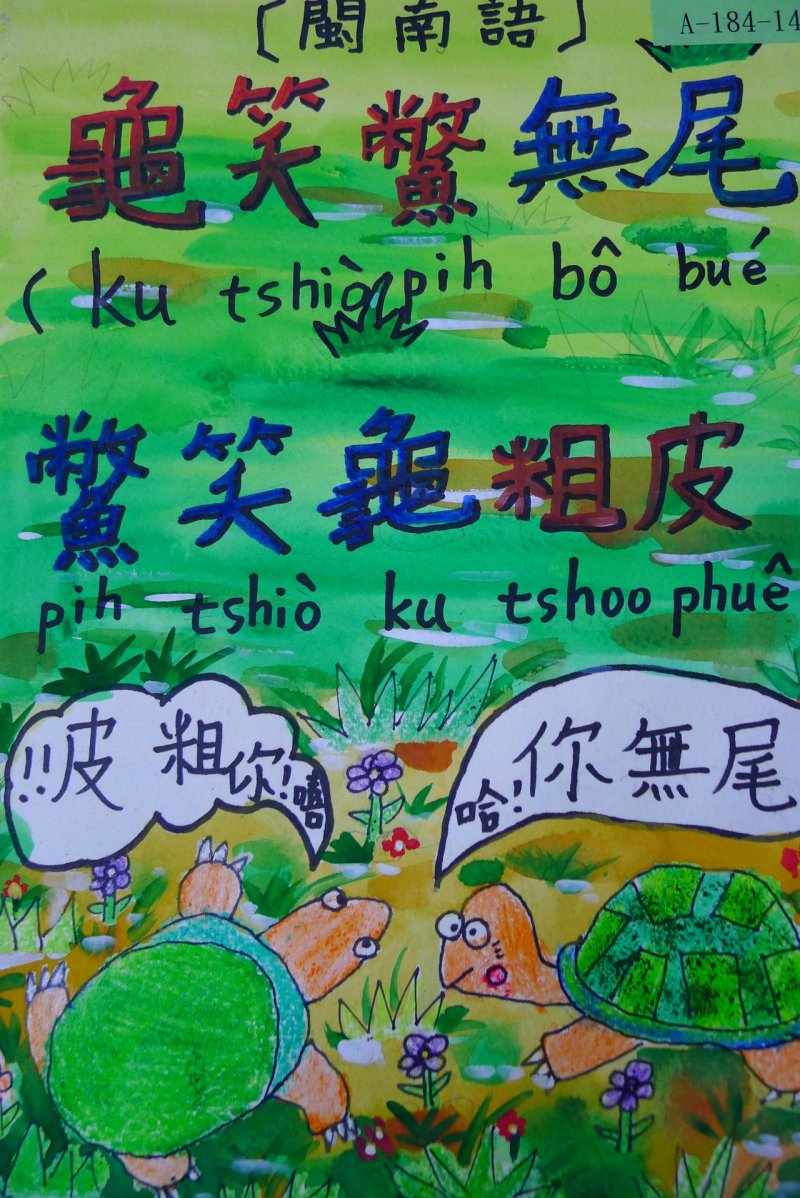 A-184-14
〔閩南語〕
龜笑鱉無尾
( ku tshiò pih bô bué
鱉笑龜粗皮
pih tshiò ku tshoo phuê
嘻!你粗皮!!
哈!你無尾